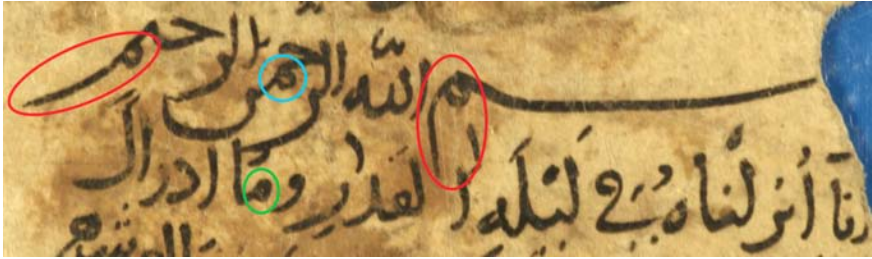 بسم الله الرحمن الرحيم
انا أنزلناه في ليله القدر وما ادراك